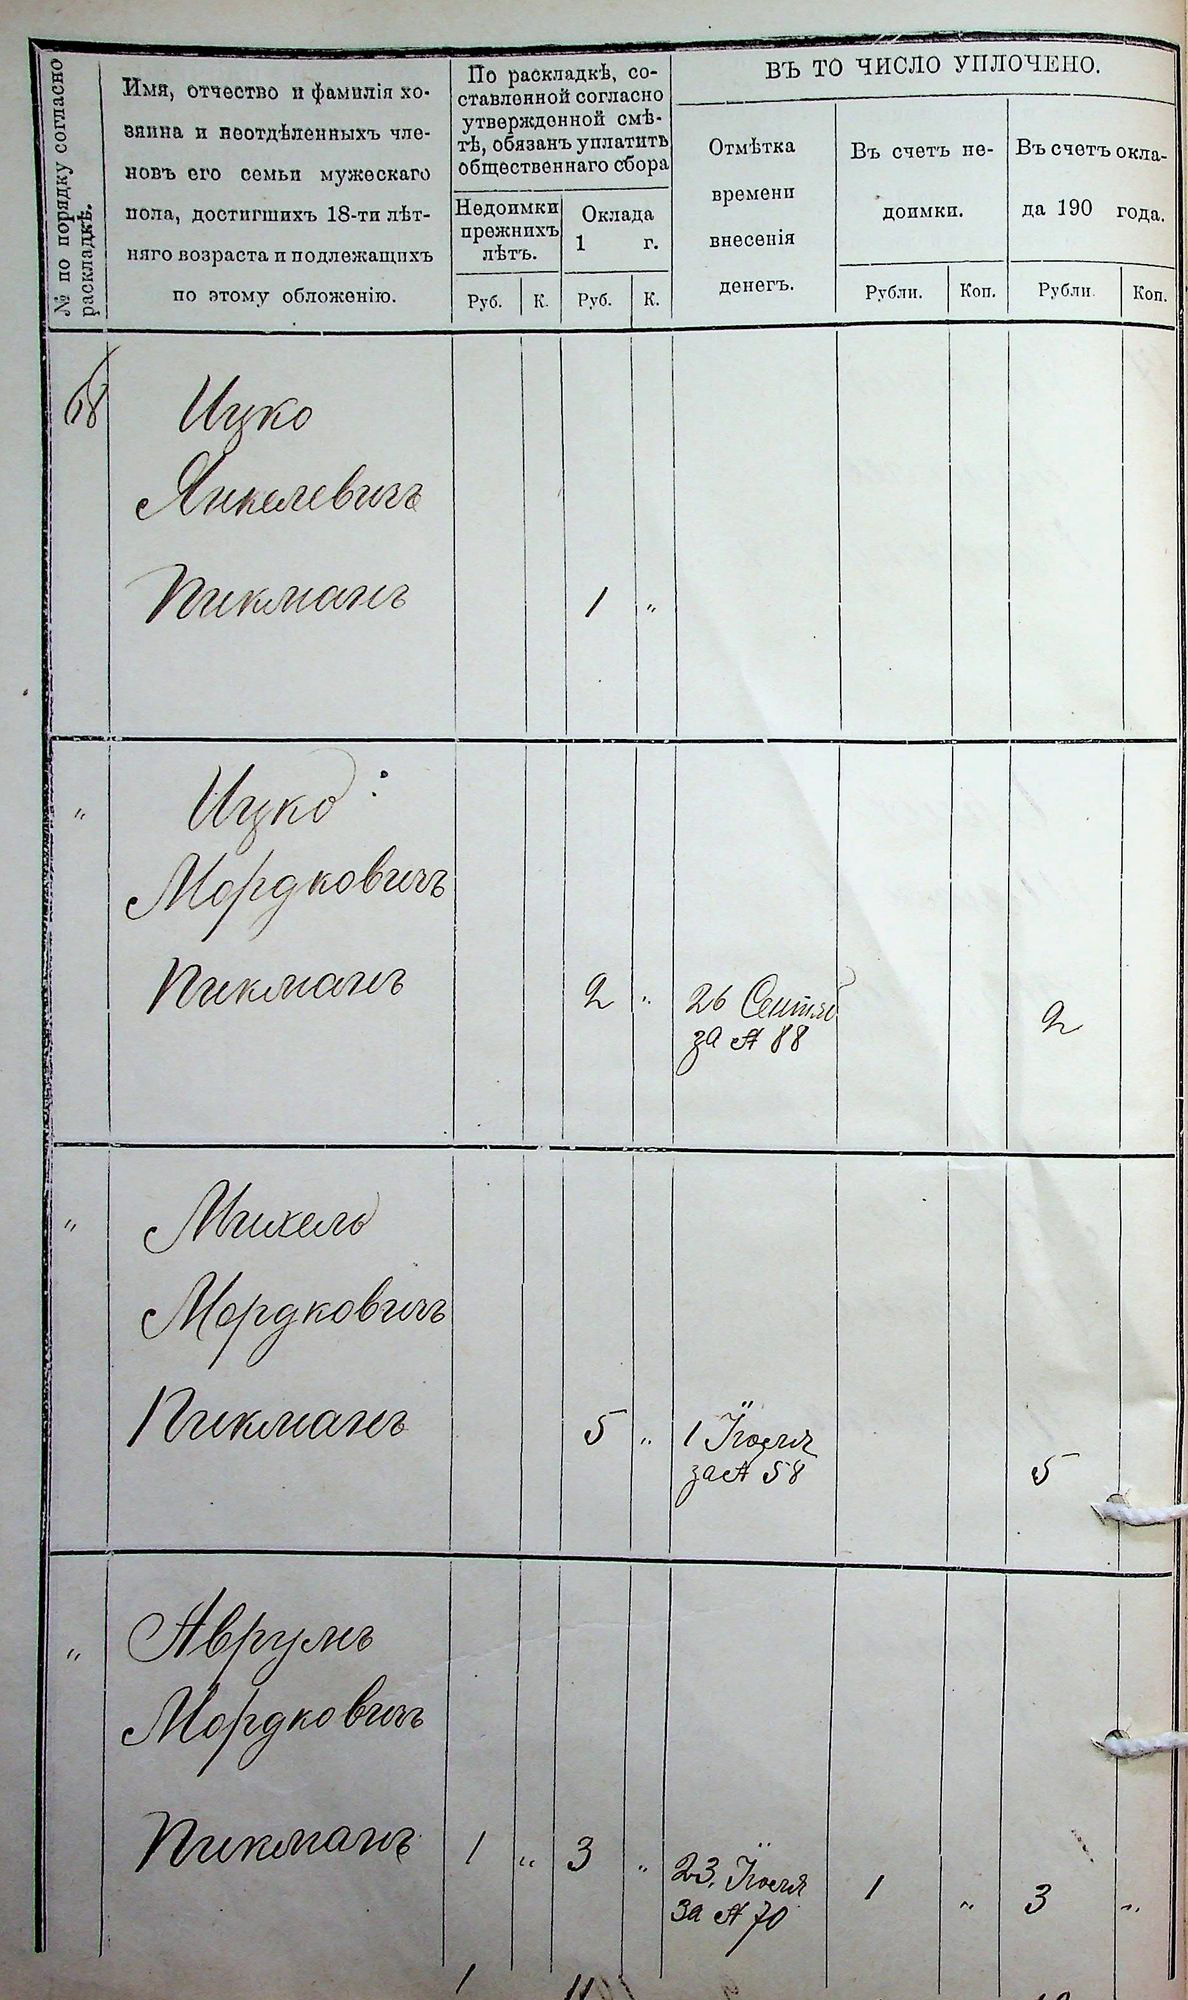 № по порядку согласно
раскладкѣ.
Имя, отчество и фамилія хо-
зяина и неотдѣленныхъ чле-
новъ его семьи мужескаго
пола, достигшихъ 18-ти лѣт-
няго возраста и подлежащихъ
по этому обложенію.
По раскладкѣ, со-
ставленной согласно
утвержденной смѣ-
тѣ, обязанъ уплатить
общественнаго сбора
Недоимки
прежнихъ
лѣтъ.
Оклада
1 г.
Руб. К. Руб. К.
ВЪ ТО ЧИСЛО УПЛОЧЕНО.
Отмѣтка
времени
внесенія
денегъ.
Въ счетъ не-
доимки.
Въ счетъ окла-
да 190 года.
Рубли. Коп. Рубли. Коп.
68 Ицко
Янкелевичъ
Пикманъ 1 „
„ Ицко
Мордковичъ
Пикманъ 2 „ 26 Сентяб 2
за № 88
„ Михель
Мордковичъ
Пикманъ 5 „ 1 5
за № 58
„ Аврумъ
Мордковичъ
Пикманъ 1 „ 3 „ 23 1 „ 3 „
за № 70
1 11